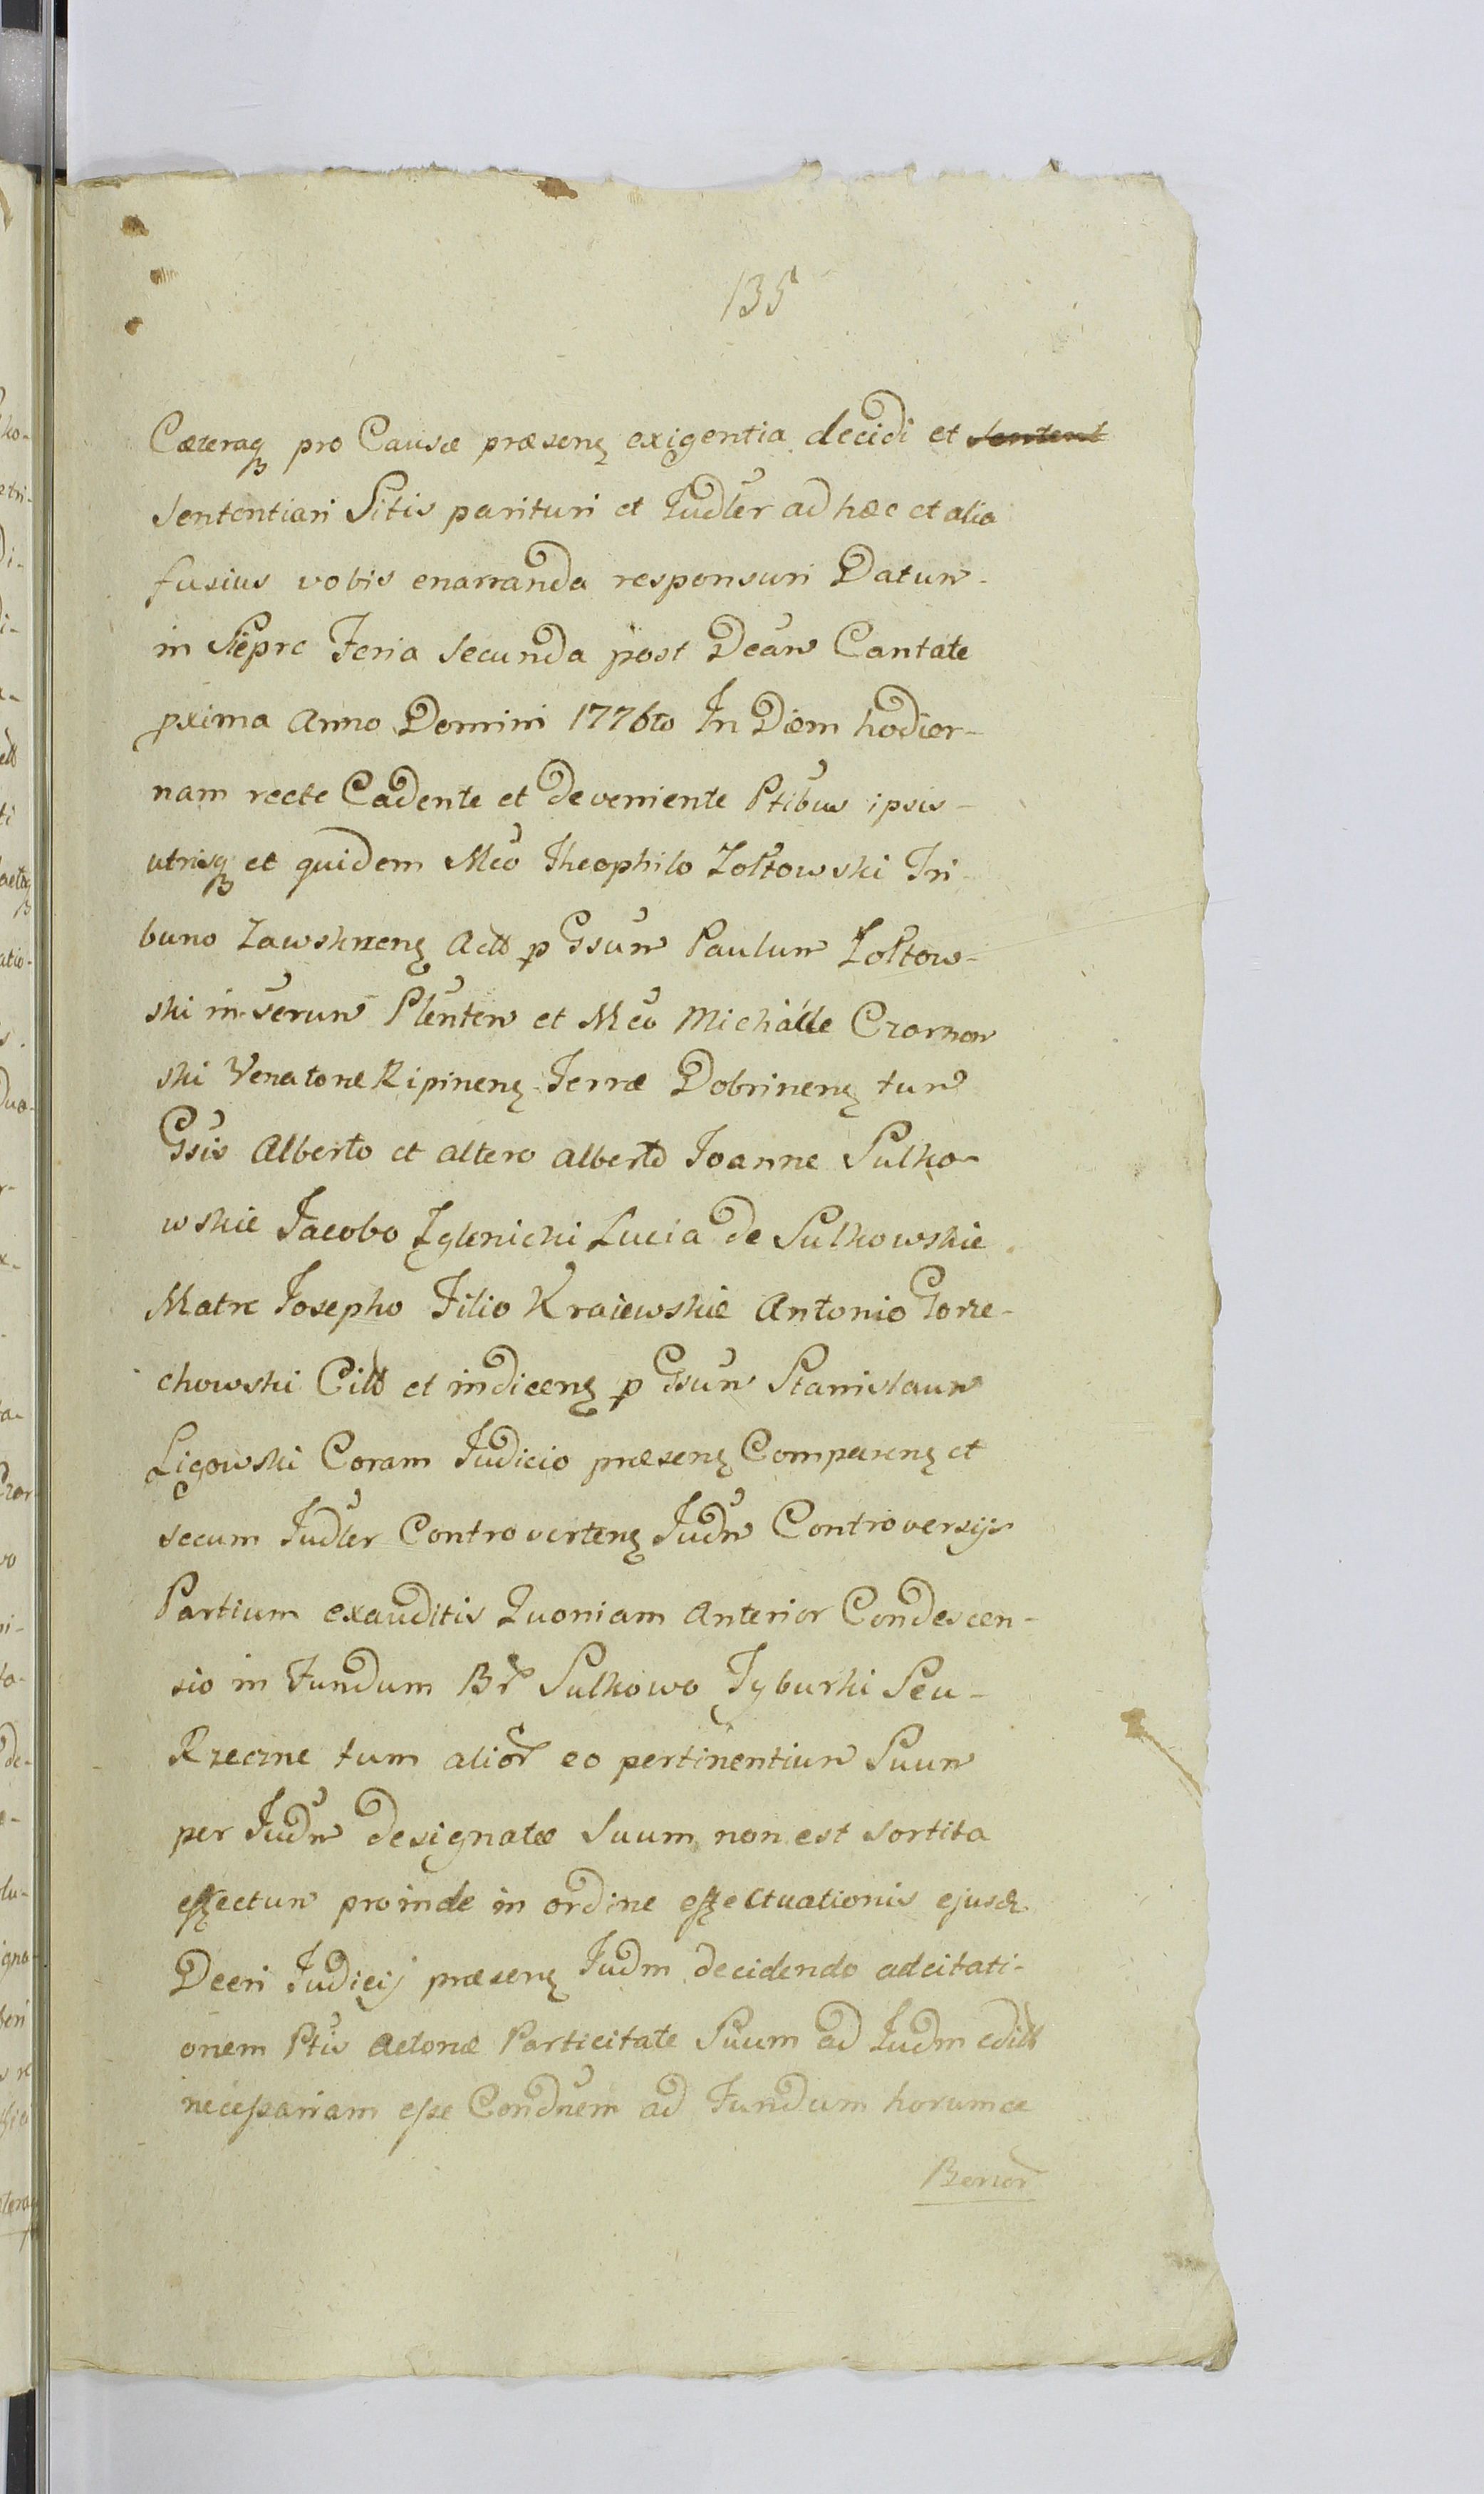 135
Cæteraq pro Causæ præsenç exigentia decidi et sentent
sententiari Sitis parituri et Judler ad hæc et alia
fusius vobis enarranda responsuri Datum
in Sieprc Feria Secunda post Dcam Cantate
pxima Anno Domini 1776to In Diem hodier-
nam recte Cadente et deveniente Ptibus ipsis
utrisq et quidem Mco Theophilo Zołtowski Tri
buno Zawskrzenç Actt p Gsum Paulum Zołtow-
ski inserum Plentem et Mco Michaele Czarnow
ski Venatore Ripinenç Terræ Dobrinenç tum
Gsis Alberto et altero Alberto Joanne Sulko-
wskie Jacobo Zglenicki Lucia de Sulkowskie
Matre Josepho Filio Kraiewskie Antonio Gorze-
chowski Citt et indicenç p Gsum Stanislaum
Ligowski Coram Judicio præsenç Comparenç et
secum Judler Controvertenç Judm Controversijs
Partium exauditis Quoniam Anterior Condescen-
sio in Fundum Br Sulkowo Tyburki Seu
Rzeczne tum alior eo pertinentium Suum
per Judm designatæ Suum non est sortita
effectum proinde in ordine effectuationis ejusd
Decri Judicij præsenç Judm decidendo adcitati-
onem Ptis Actoræ Particitatæ Suum ad Judm editt
necessariam esse Condnem ad Fundum horumce
Bonor